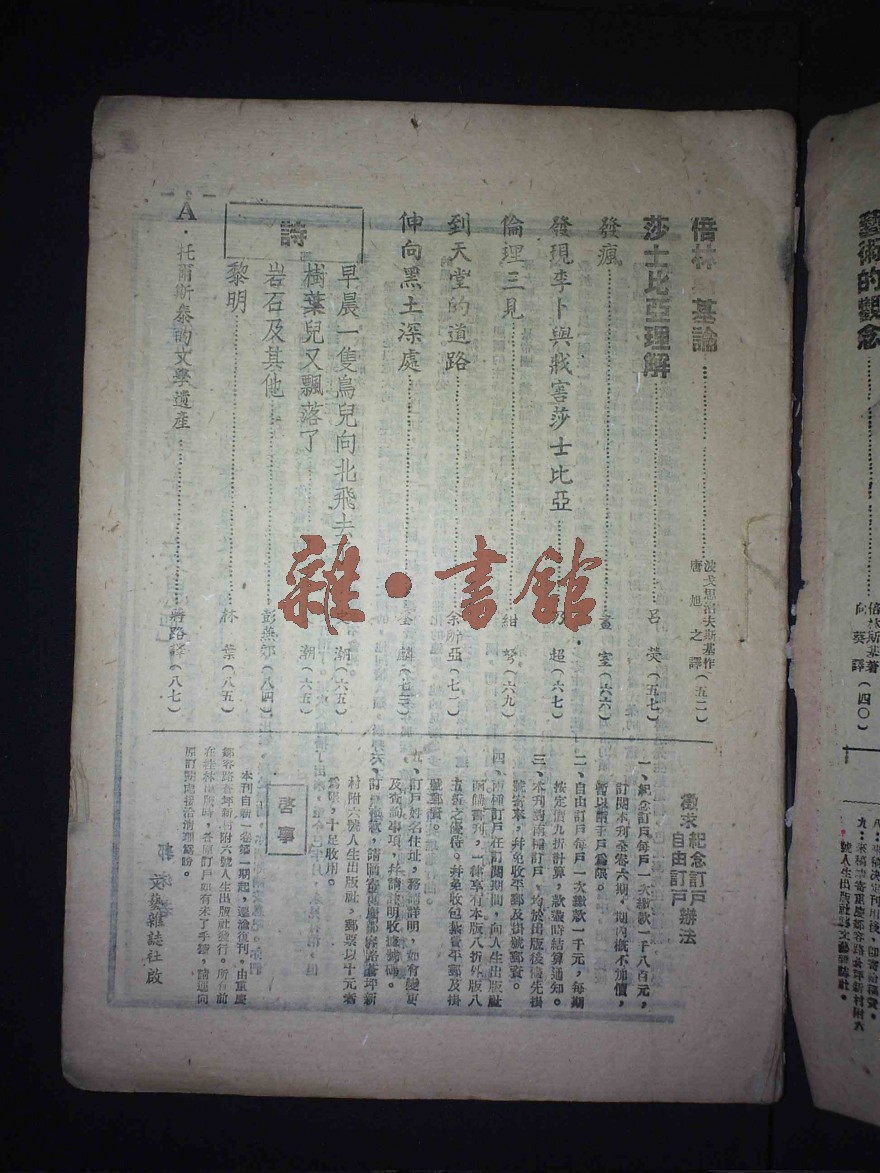 藝術的觀念
倍林斯基著
向葵譯(四〇)
八、來稿決定刊用後，即寄給稿費。
九、來稿請寄重慶鄒容路蒼坪新村附六
號人生出版社轉文藝雜誌社。
倍林 基論
波戈思洛夫斯基作
唐旭之譯(五二)
莎士比亞理解
呂熒(五七)
發瘋
畫室(六六)
發現李卜與戕害莎士比亞
乃超(六七)
倫理三見
紺弩(六九)
到天堂的道路
余所亞(七一)
伸向黑土深處
麟(七三)
詩
早晨一隻鳥兒向北飛去
潮(六五)
樹葉兒又飄落了
潮(六五)
岩石及其他
彭燕郊(八四)
黎明
林葉(八五)
A·托爾斯泰的文學遺產
蔣路譯(八七)
徵求紀念訂戶
自由訂戶辦法
一、紀念訂戶每戶一次繳款一千八百元，
訂閱本刊全卷六期，期內概不加價，
暫以壹千戶為限。
二、自由訂戶每戶一次繳款一千元，每期
按定價九折計算，款盡時結算通知。
三、本刊對兩種訂戶，均於出版後儘先掛
號寄奉，并免收平郵及掛號郵資。
四、兩種訂戶在訂閱期間，向人生出版社
函購書刊，一律享有本版八折外版八
五折之優待。并免收包裝費平郵及掛
號郵資。
五、訂戶姓名住址，務請詳明，如有變更
及查詢事項，并請註明收據號碼。
六、訂戶繳款，請匯寄重慶鄒容路蒼坪新
村附六號人生出版社，郵票以十元者
為限，十足收用。
啓事
本刊自新一卷第一期起，遷渝復刊。由重慶
鄒容路蒼坪新村附六號人生出版社發行。所有前
在桂林出版時，各原訂戶如有未了手續，請逕向
原訂閱處接洽清理為盼。
文藝雜誌社啟
雜·書館